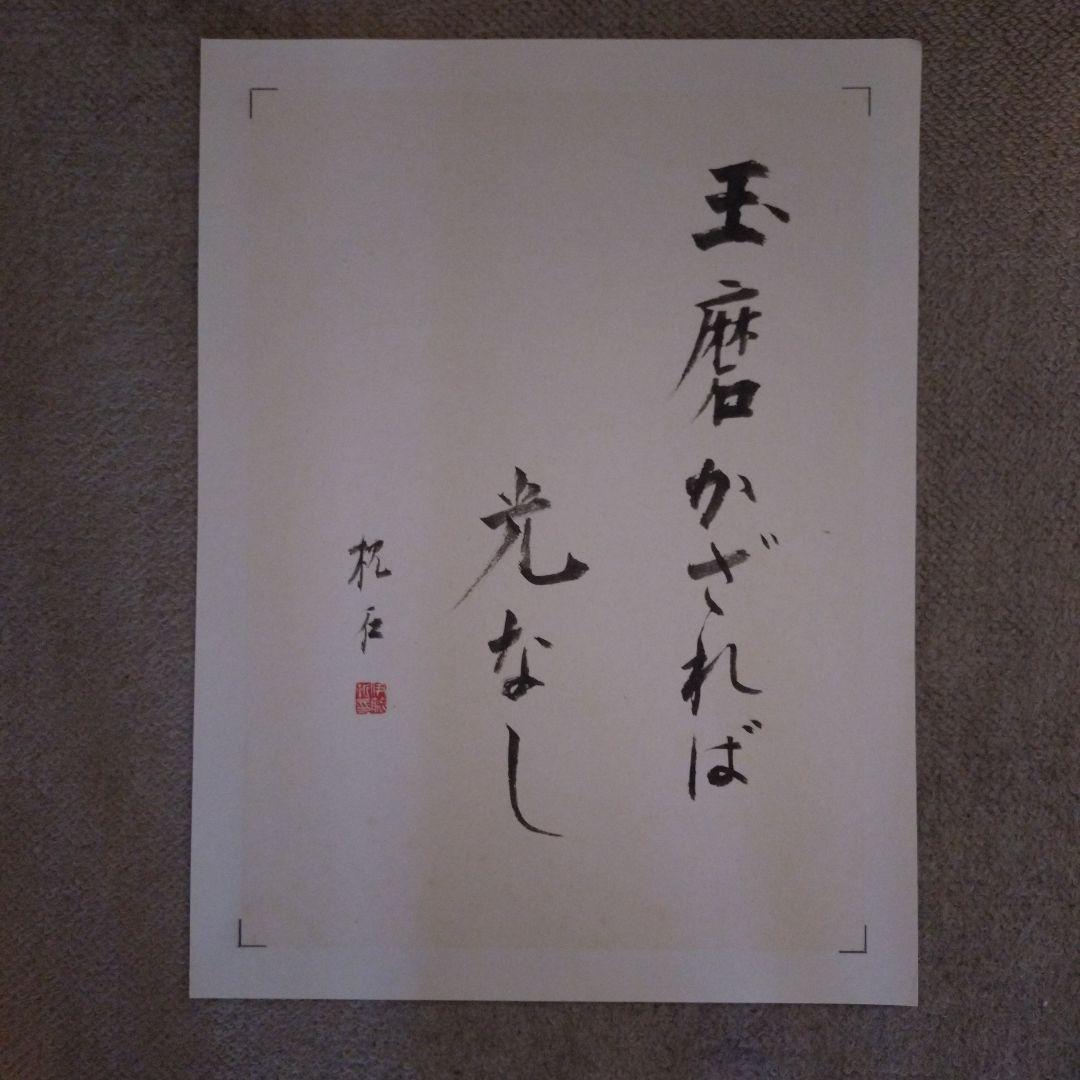 玉磨かざれば
光なし